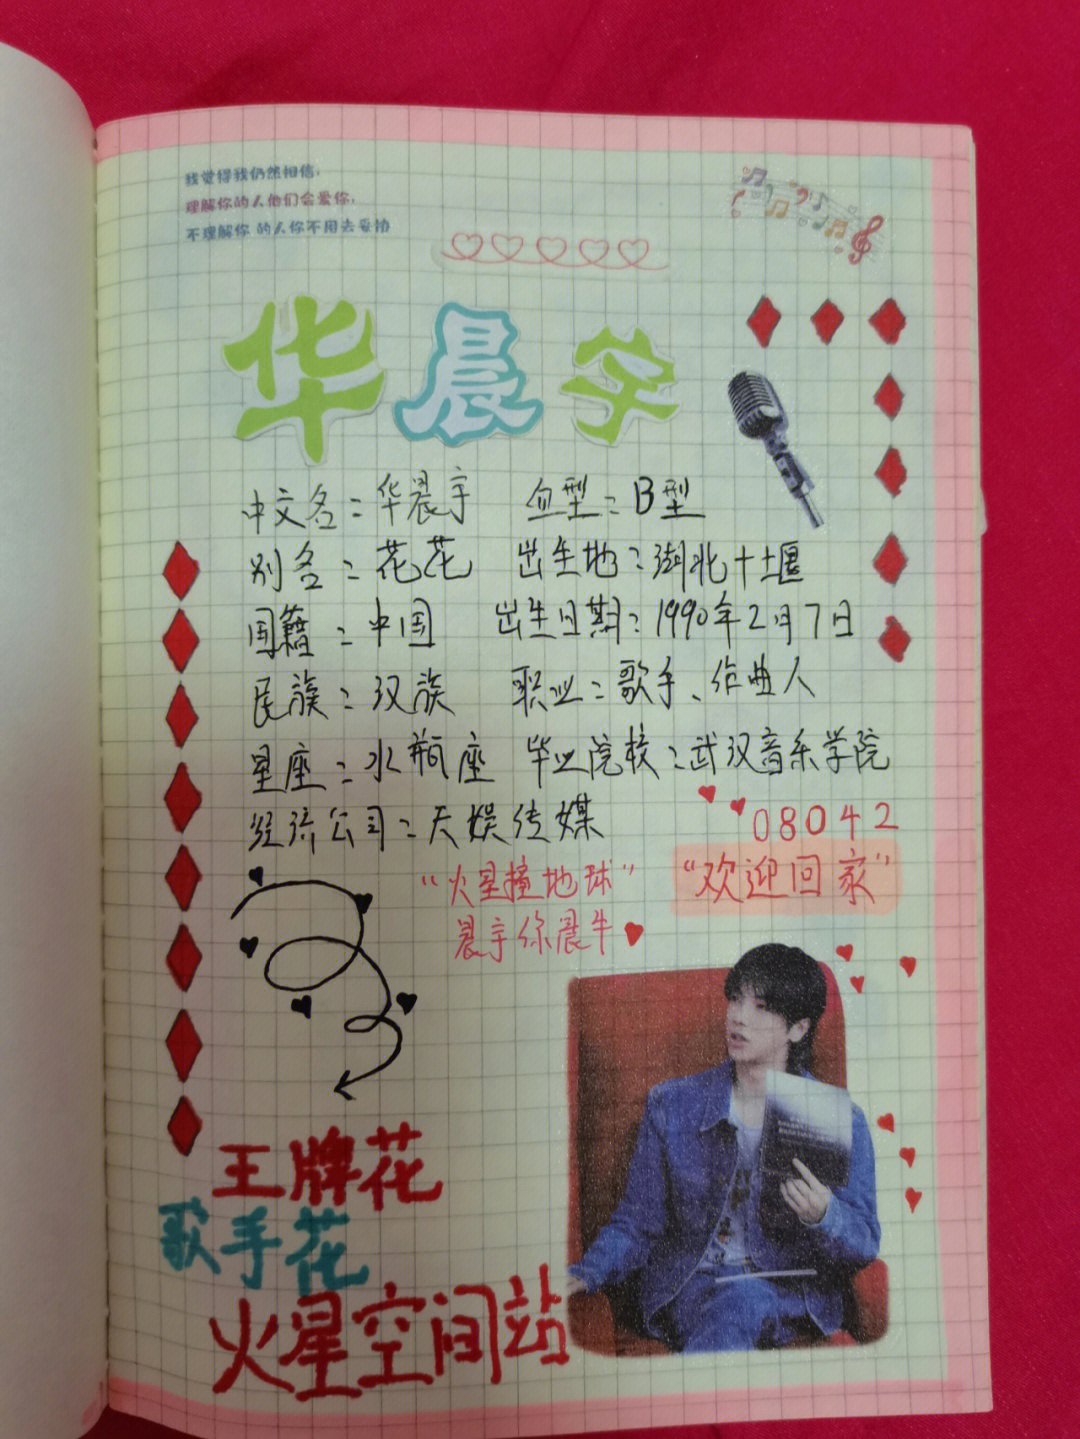 我觉得我仍然相信,
理解你的人他们会爱你,
不理解你 的人你不用去妥协
华晨宇
中文名:华晨宇 血型:B型
别名:花花 出生地:湖北十堰
国籍:中国 出生日期:1990年2月7日
民族:汉族 职业:歌手、作曲人
星座:水瓶座 毕业院校:武汉音乐学院
经济公司:天娱传媒
08042
“火星撞地球” “欢迎回家”
晨宇你晨牛
王牌花
歌手花
火星空间站